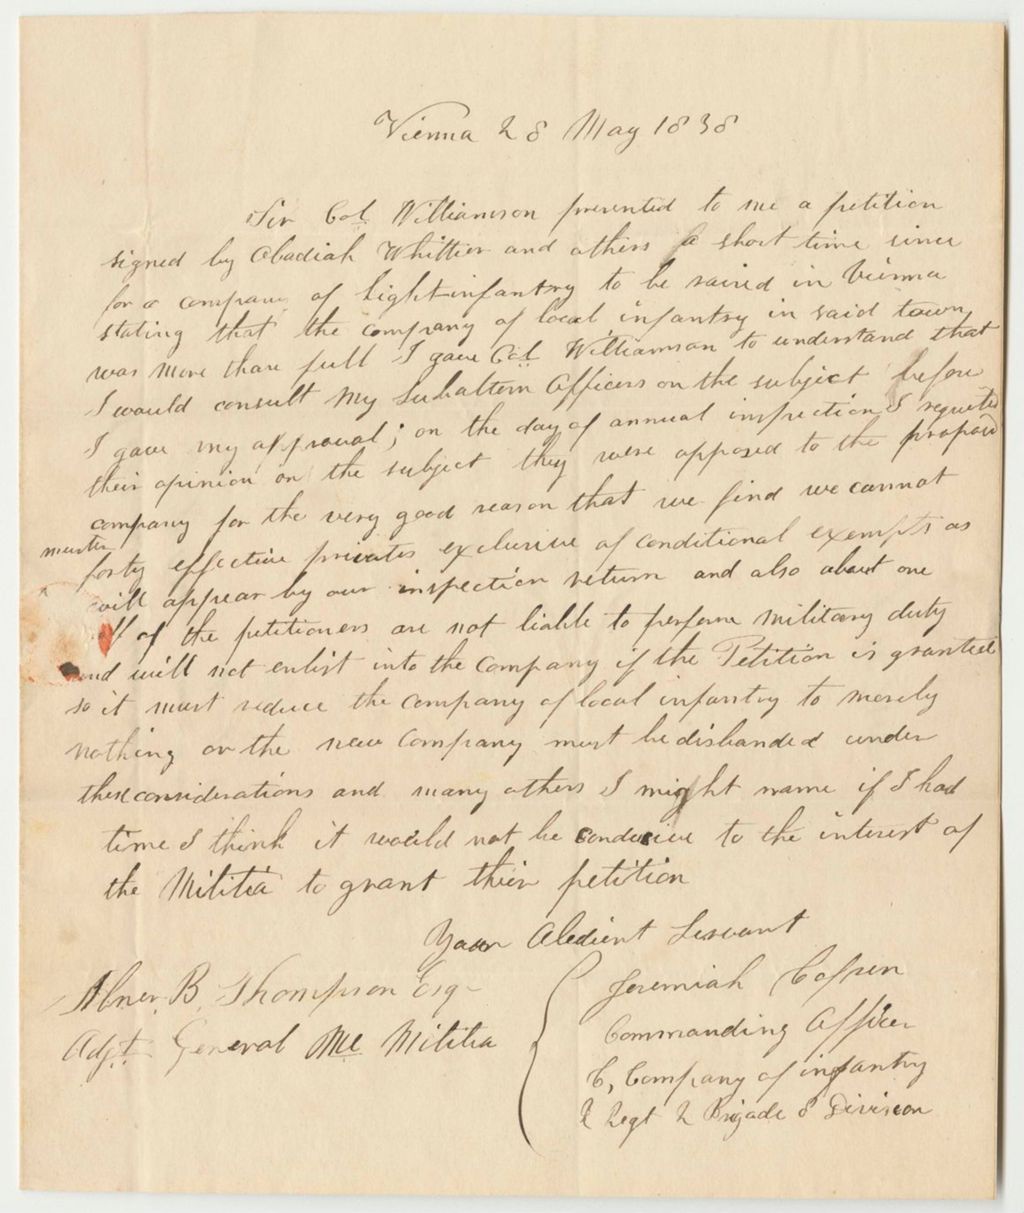 Vienna 28 May 1838
Sir Col Williamson presented to me a petition
signed by Obadiah Whittier and others a short time since
for a company of Light infantry to be raised in Vienna
stating that the company of local infantry in said town
was more than full I gave Col Williamson to understand that
I would consult my Subaltern Officers on the subject before
I gave my approval; on the day of annual inspection I requested
their opinion on the subject they were opposed to the proposed
company for the very good reason that we find we cannot
muster
forty effective privates exclusive of conditional exempts as
will appear by our inspection return and also about one
of the petitioners are not liable to perform military duty
and will not enlist into the Company if the Petition is granted
so it must reduce the company of local infantry to merely
nothing or the new Company must be disbanded under
these considerations and many others I might name if I had
time I think it would not be conducive to the interest of
the Militia to grant their petition
Your Obedient Servant
Abner B. Thompson Esq
Adjt. General Me Militia
Jeremiah
Commanding Officer
C, Company of infantry
2 Regt 2 Brigade 8 Division